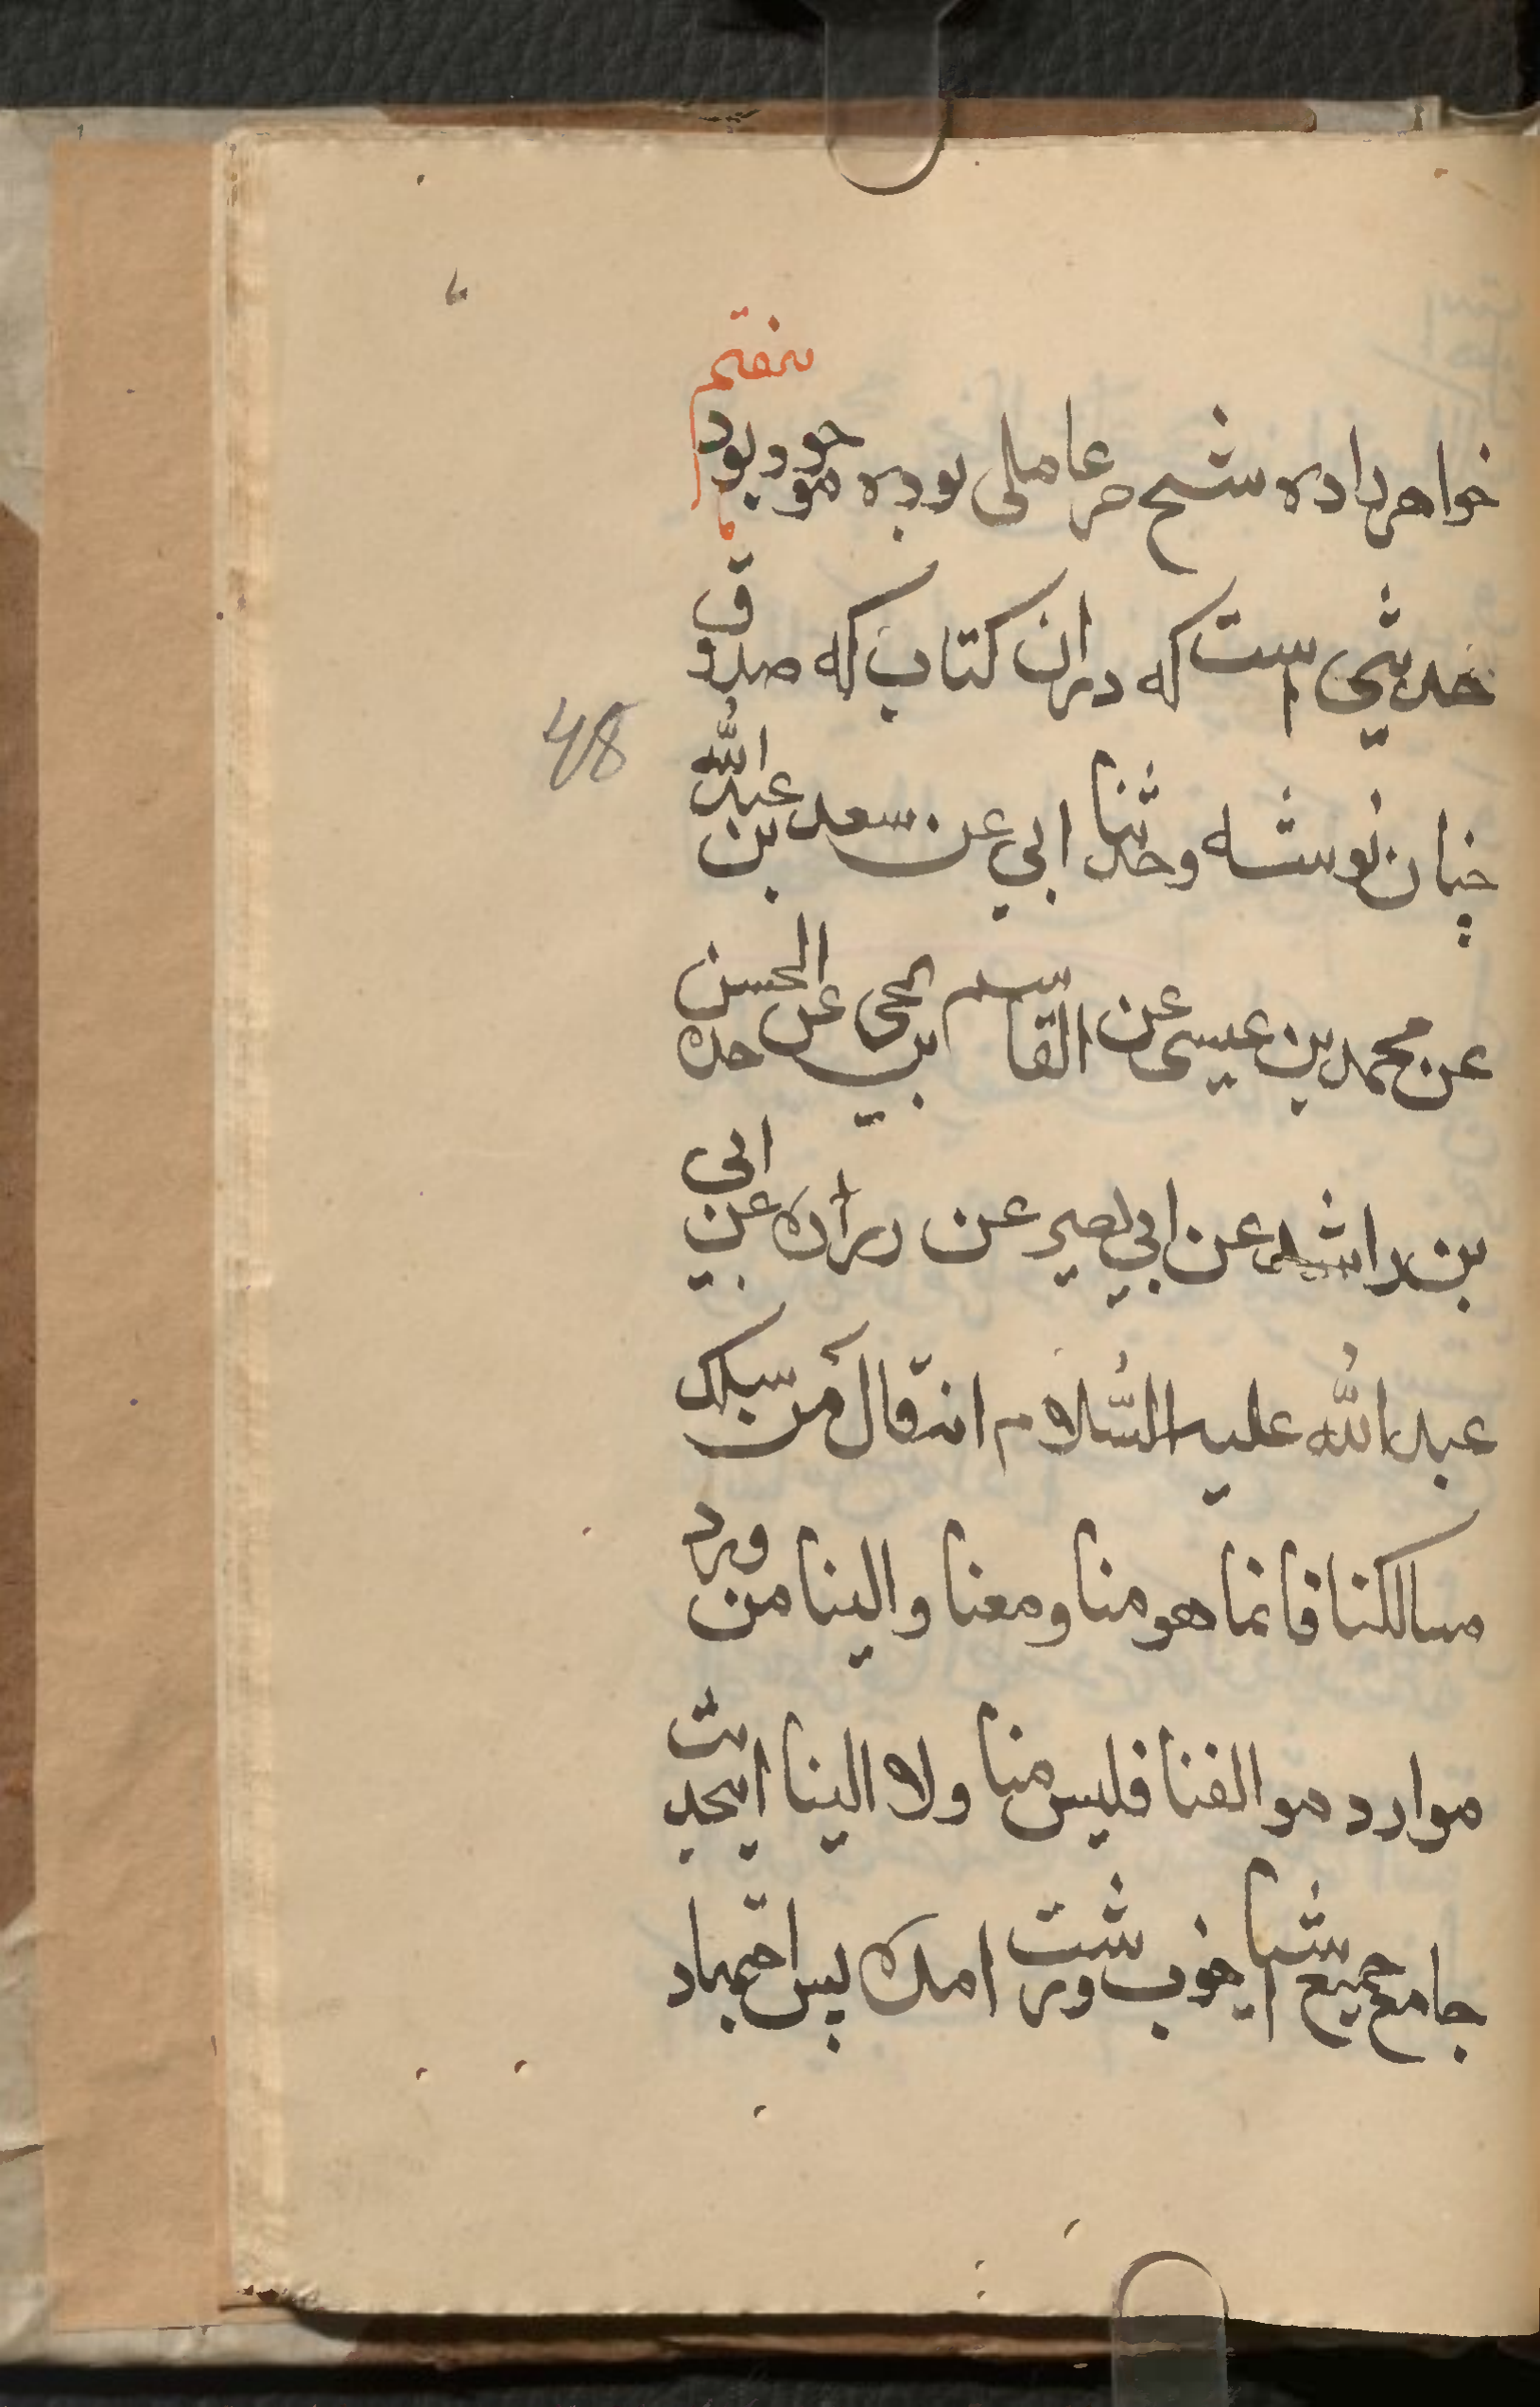 هفتم
خواهرزاده شیخ حر عاملی بوده موجود بود
حدیثی است که در ان کتاب که صدوق
چنان نوشته وحدثنا ابي عن سعد بن عبدالله
عن محمد بن عيسى عن القاسم بن يحيى عن جده الحسن
بن راشد عن ابي بصير عن زرارة عن ابي
عبدالله عليه السّلام انه قال من سلك
مسالكنا فانما هو منا ومعنا والينا من ورد
موارد موالفنا فليس منا ولا الينا اینحدیث
جامع جمیع اشیا خوب وزشت امده پس اقتباد
48